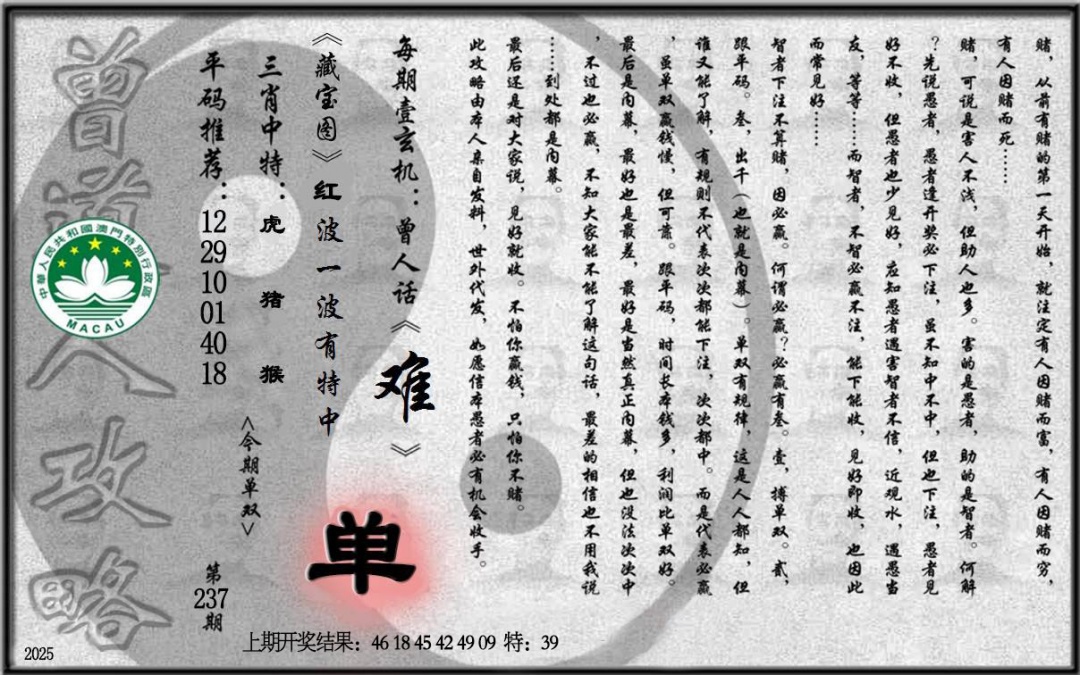 赌，从前有赌的第一天开始，就注定有人因赌而富，有人因赌而穷，
有人因赌而死……
赌，可说是害人不浅，但助人也多。害的是愚者，助的是智者。何解
？先说愚者，愚者逢开奖必下注，虽不知中不中，但也下注，愚者见
好不收，但愚者也少见好，应知愚者遇害智者不信，近观水，遇愚当
友，等等……而智者，不智必赢不注，能下能收，见好即收，也因此
而常见好……
智者下注不算赌，因必赢。何谓必赢？必赢有叁。壹，搏单双。贰，
跟单码。叁，出千（也就是内幕）。单双有规律，这是人人都知，但
谁又能了解，有规则不代表次次都能下注，次次都中。而是代表必赢
，虽单双赢钱慢，但可靠。跟单码，时间长本钱多，利润比单双好。
最后是内幕，最好也是最差，最好是当然真正内幕，但也没法次次中
，不过也必赢，不知大家能不能了解这句话，最差的相信也不用我说
……到处都是内幕。
最后还是对大家说，见好就收。不怕你赢钱，只怕你不赌。
此攻略由本人亲自发料，世外代发，如愿信本愚者必有机会收手。
每期壹玄机：曾人话《难》
《藏宝图》红波一波有特中
单
三肖中特：虎 猪 猴
<今期单双>
平码推荐：12 29 10 01 40 18
第237期
曾道人攻略
中華人民共和國澳門特別行政區
MACAU
上期开奖结果：46 18 45 42 49 09 特：39
2025